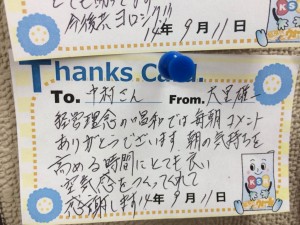 今後共ヨロシク!!
14年9月11日
Thanks Card.
To. 中村さん From. 大里雄二
経営理念の唱和では毎朝コメント
ありがとうございます 朝の気持ちを
高める時間にとても良い
空気感をつくってくれて
感謝します 14年9月11日
KS